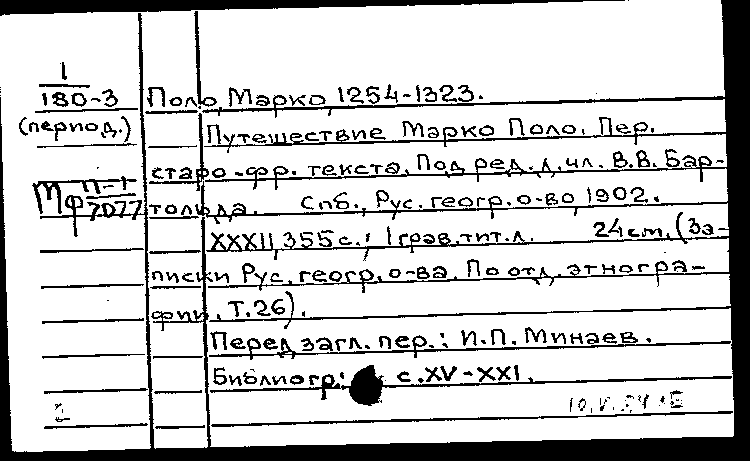 1
180-3 Поло, Марко, 1254-1323.
(период.) Путешествие Марко Поло. Пер.
старо-фр. текста. Под ред. д. чл. В.В. Бар-
Мф П-1
7077 тольда. Спб., Рус. геогр. о-во, 1902.
XXXII, 355 с.; 1 грав. тит. л. 24 см. (За-
писки Рус. геогр. о-ва. По отд. этногра-
фии. Т. 26).
Перед загл. пер.: И.П. Минаев.
Библиогр.: с. XV-XXI.